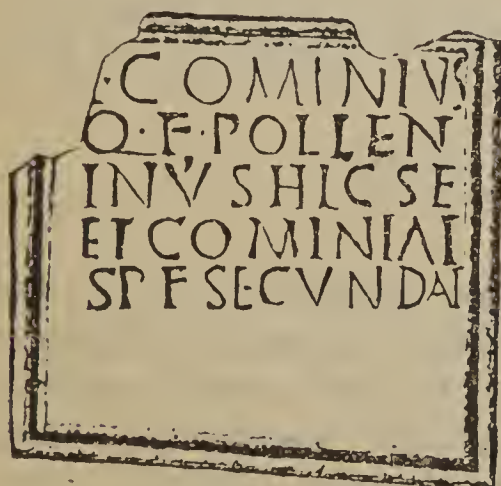 · COMINIVS
Q · F · POLLEN
INVS HIC SE
ET COMINIAI
SP F SECVNDAI